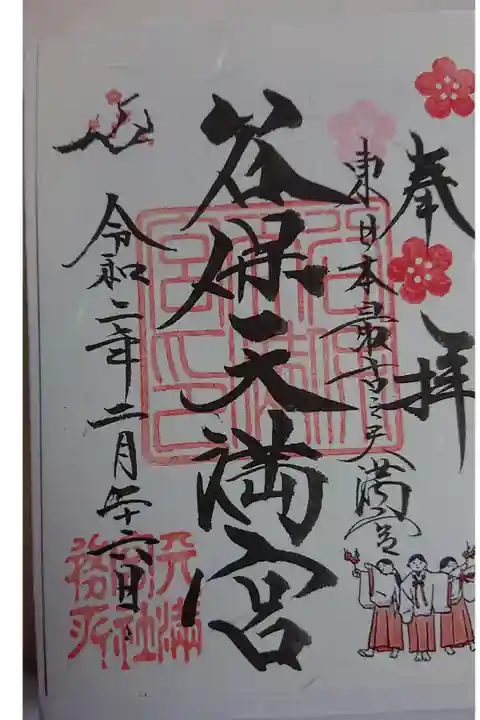 奉拝
東日本最古之天満宮
谷保天満宮
令和二年二月二十六日
天満宮社務所